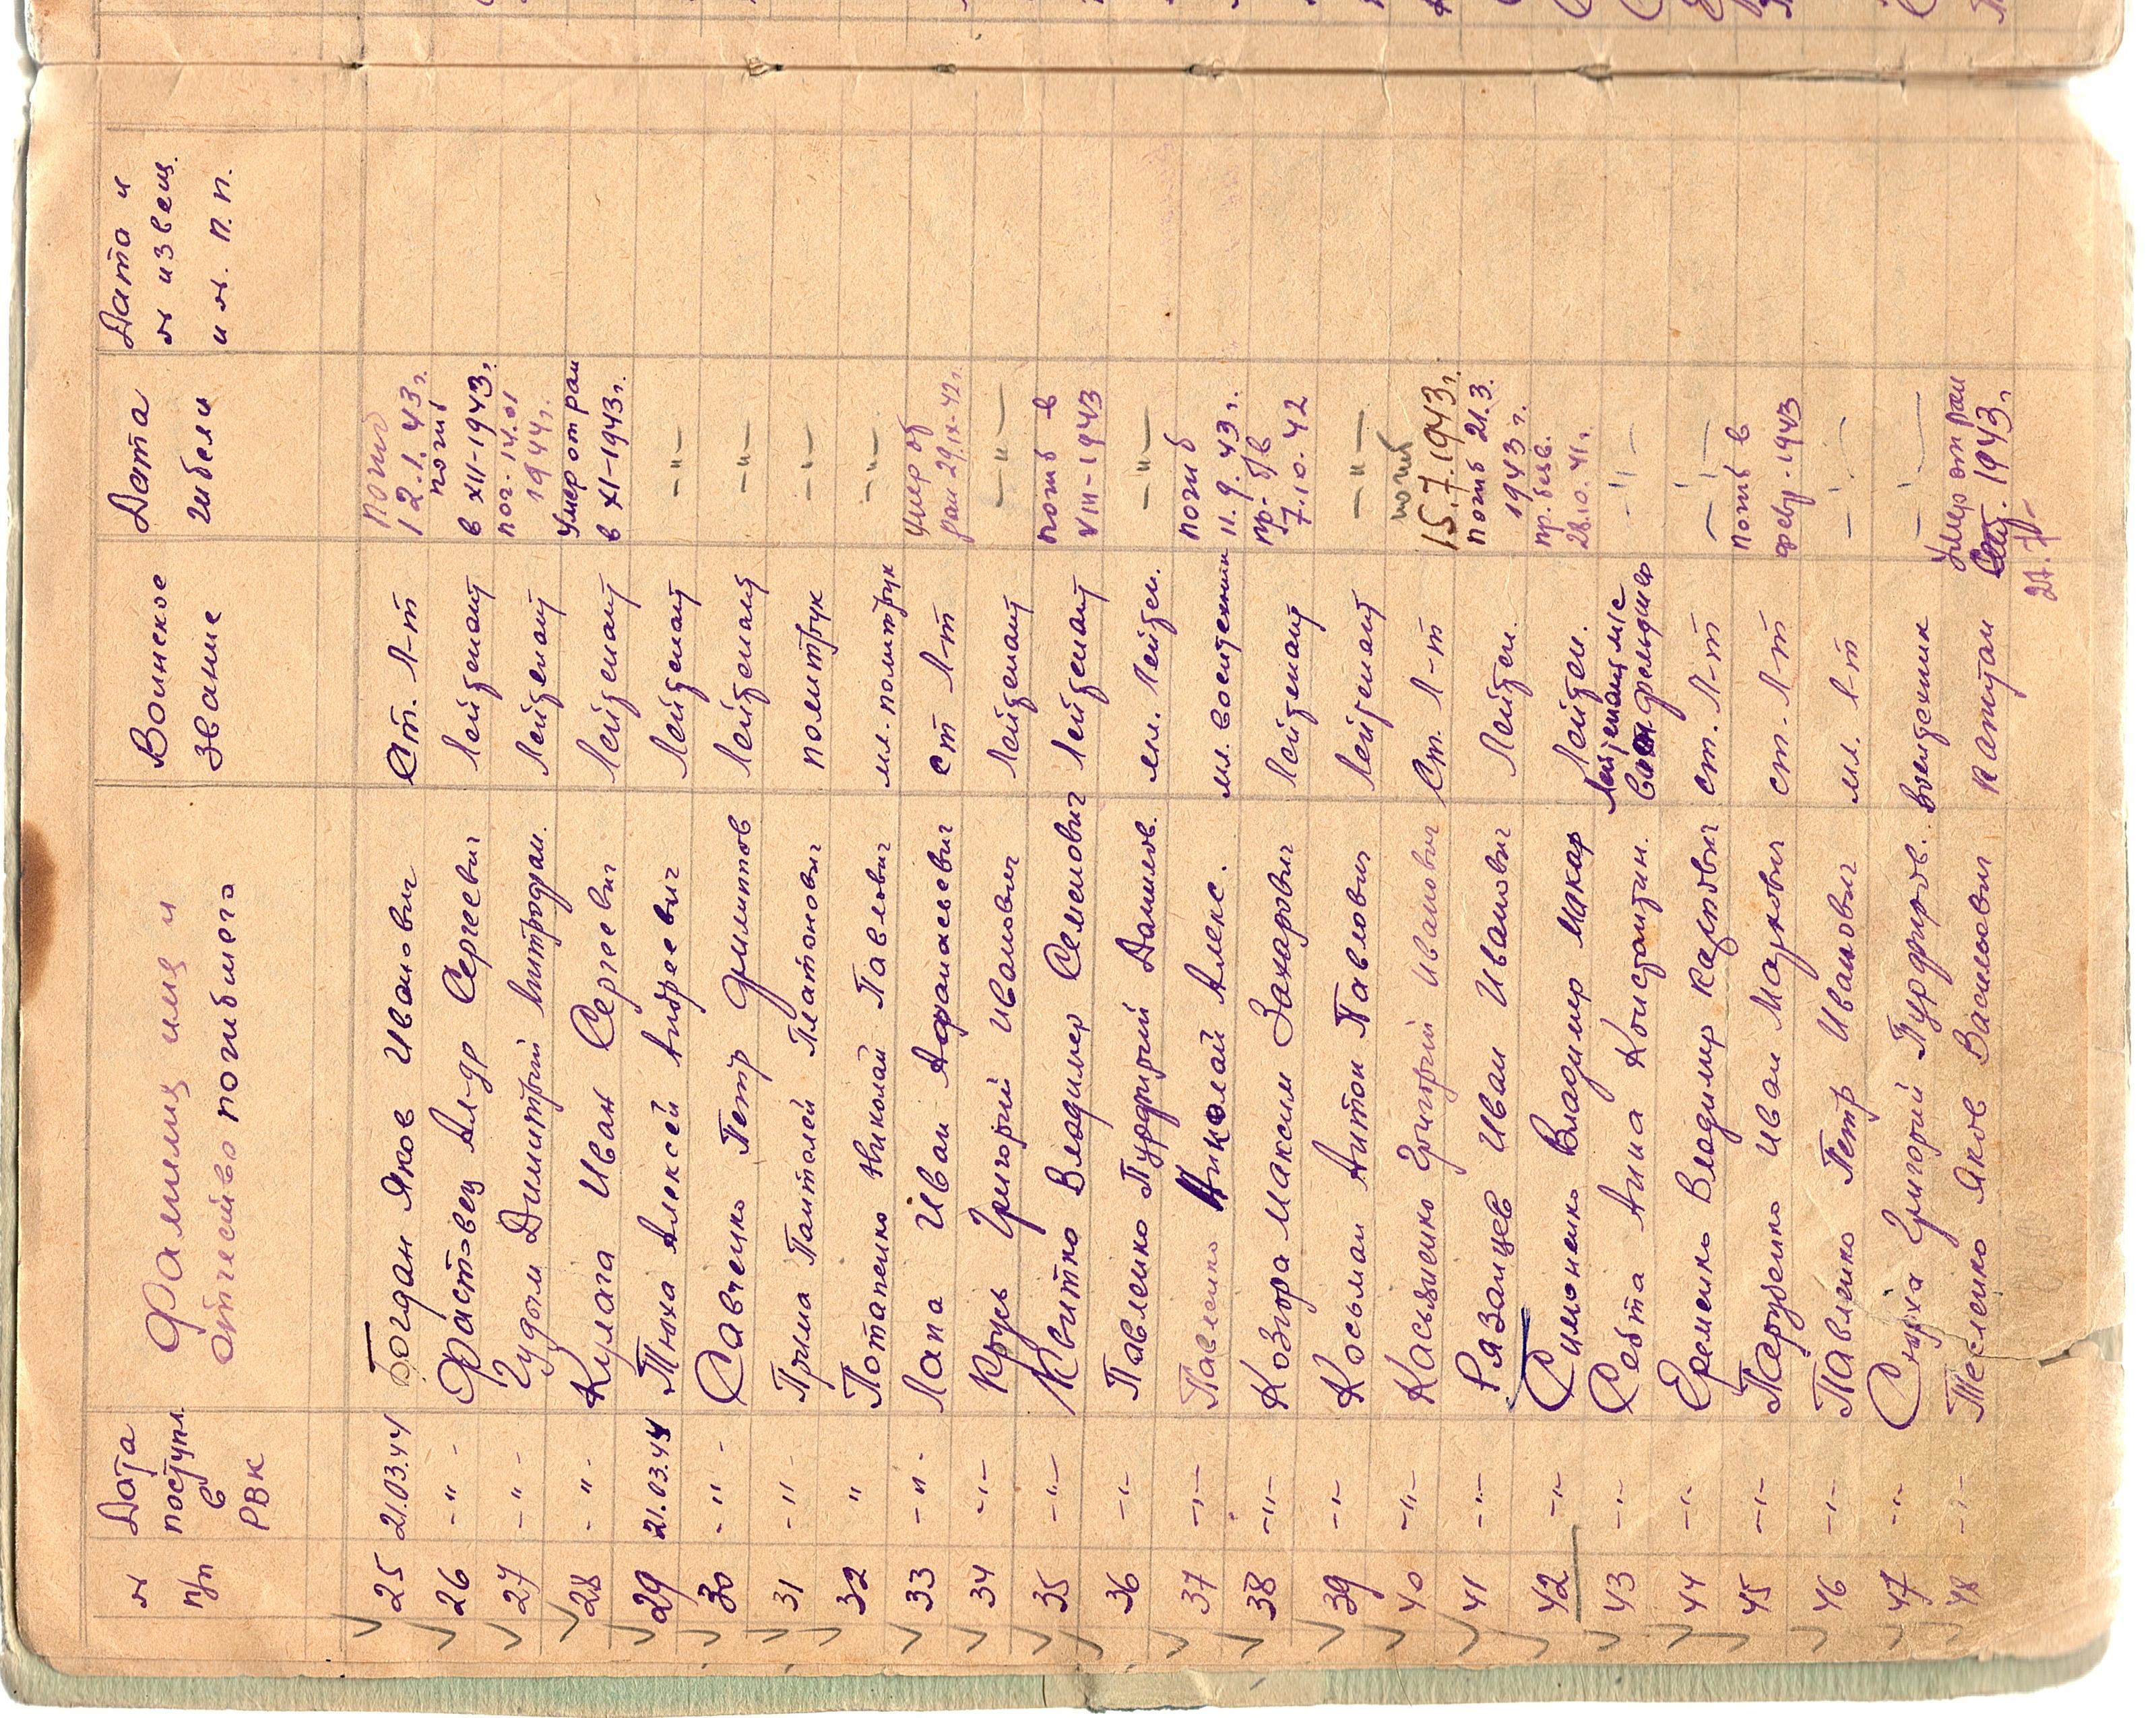 № п/п
Дата поступл. в РВК
Фамилия имя и отчество погибшего
Воинское звание
Дата гибели
Дата и № извещ. и № п.п.
25 21.03.44 Богдан Яков Иванович Ст. Л-т погиб 12.1.43 г.
26 -"- Фастовец Ал-др Сергеевич Лейтенант погиб в XII-1943,
27 -"- Чудом Димитрий Митрофан. Лейтенант пог. 14.01 1944 г.
28 -"- Кулага Иван Сергеевич Лейтенант Умер от ран в XI-1943 г.
29 21.03.44 Тюха Алексей Андреевич Лейтенант -"-
30 -"- Савченко Петр Филиппов Лейтенант -"-
31 -"- Прима Пантелей Платонович политрук -"-
32 " Потапенко Николай Павлович мл. политрук -"-
33 -"- Лапа Иван Афанасьевич ст Л-т Умер от ран 29.IX-42 г.
34 -"- Крусь Григорий Иванович Лейтенант -"-
35 -"- Квитко Владимер Семенович Лейтенант погиб в VIII-1943
36 -"- Павленко Пурфирий Данилов. мл. Лейтен. -"-
37 -"- Павленко Николай Алекс. мл. воентехник погиб 11.9.43 г.
38 -"- Козира Максим Захарович Лейтенант пр. б/в 7.10.42
39 -"- Косьман Антон Павлович Лейтенант -"-
40 -"- Касьяненко Григорий Иванович Ст. Л-т погиб 15.7.1943 г.
41 -"- Рязанцев Иван Иванович Лейтен. погиб 21.3. 1943 г.
42 -"- Симоненко Владимер Макар Лейтен. пр. безв. 28.10.41 г.
43 -"- Себта Анна Константин. Лейтенант м/с фельдшер -"-
44 -"- Еременко Владимир Карпович ст. Л-т -"-
45 -"- Парубенко Иван Маркович ст. Л-т погиб в февр.-1943
46 -"- Павленко Петр Иванович мл. Л-т -"-
47 -"- Григорий Пурфиров. воентехник -"-
48 -"- Тесленко Яков Васильович капитан Умер от ран 1943 г.